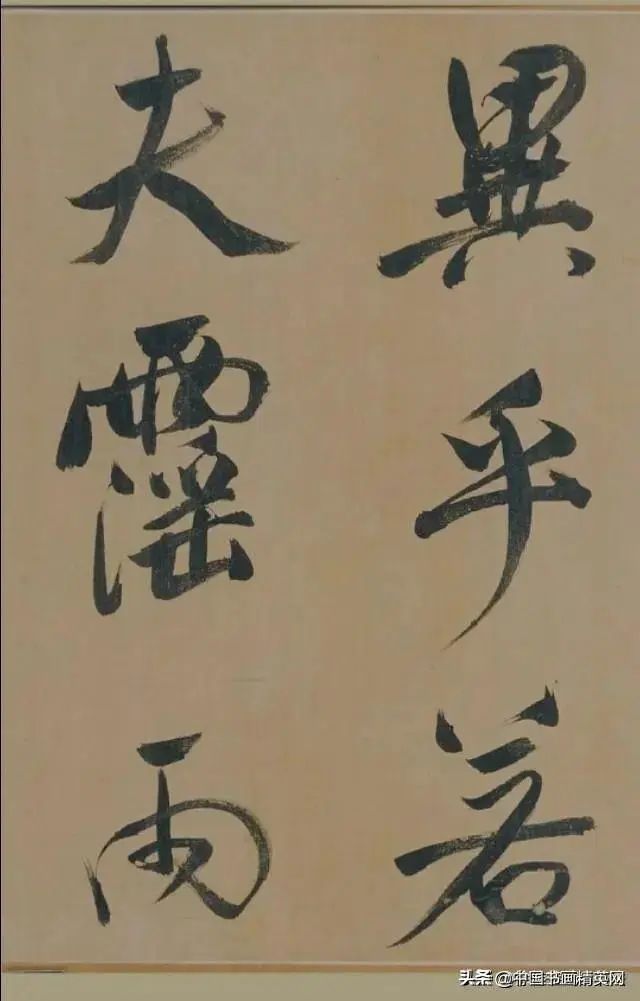 異乎若
夫霪雨
头条 @中国书画精英网